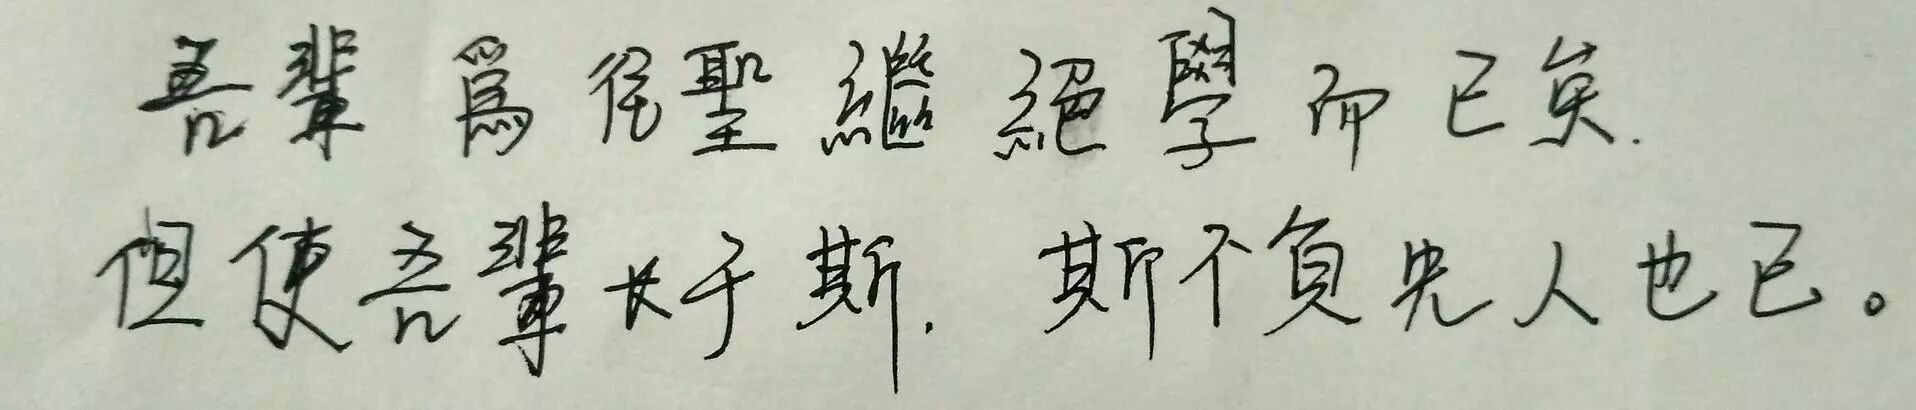 吾輩爲往聖繼絕學而已矣.
但使吾輩长于斯. 斯不負先人也已。